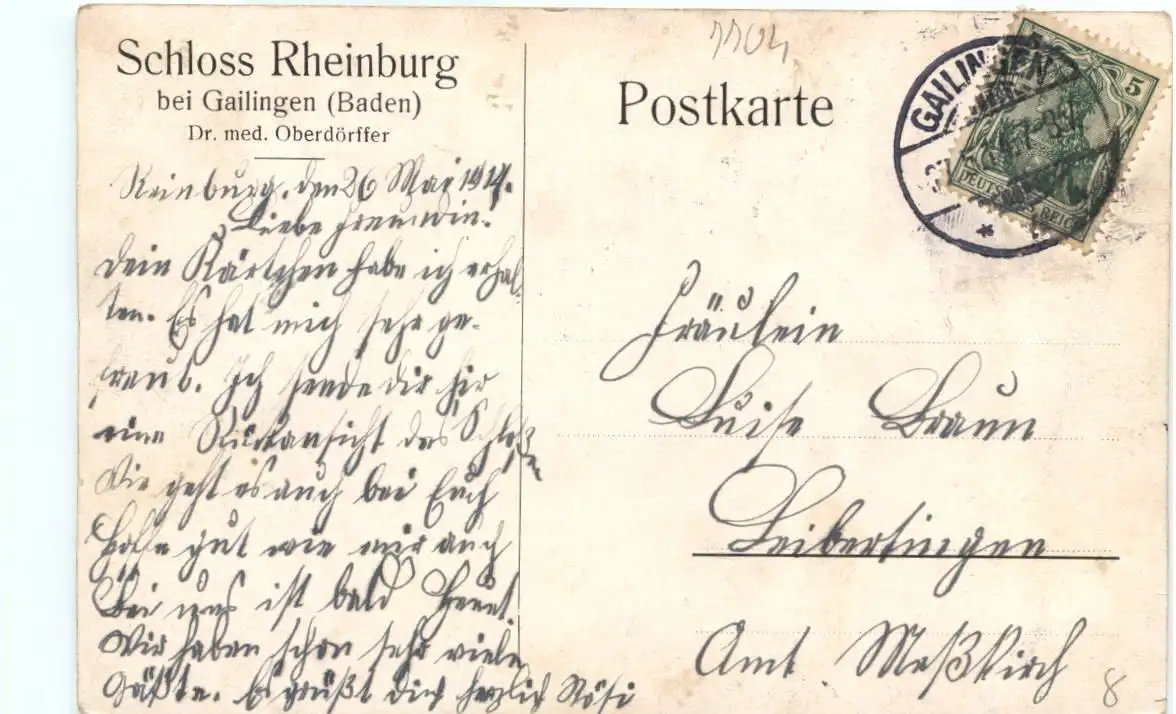 Schloss Rheinburg
bei Gailingen (Baden)
Dr. med. Oberdörffer
Reinburg, den 26 Mai 191
Liebe Freundin!
Dein Kärtchen habe ich erhal-
ten. Es hat mich sehr ge-
freut. Ich sende dir hir
eine Rückansicht des Schloß
Wie geht es auch bei Euch
Hoffe gut wie mir auch
Bei uns ist bald Heuet.
Wir haben schon sehr viele
Gäßte. Es grüßt dich herzlich Rösi
1104
Postkarte
GAILINGEN
5
DEUTSCHES
REICH
Fräulein
Luise Braun
Leibertingen
Amt Meßkirch
8